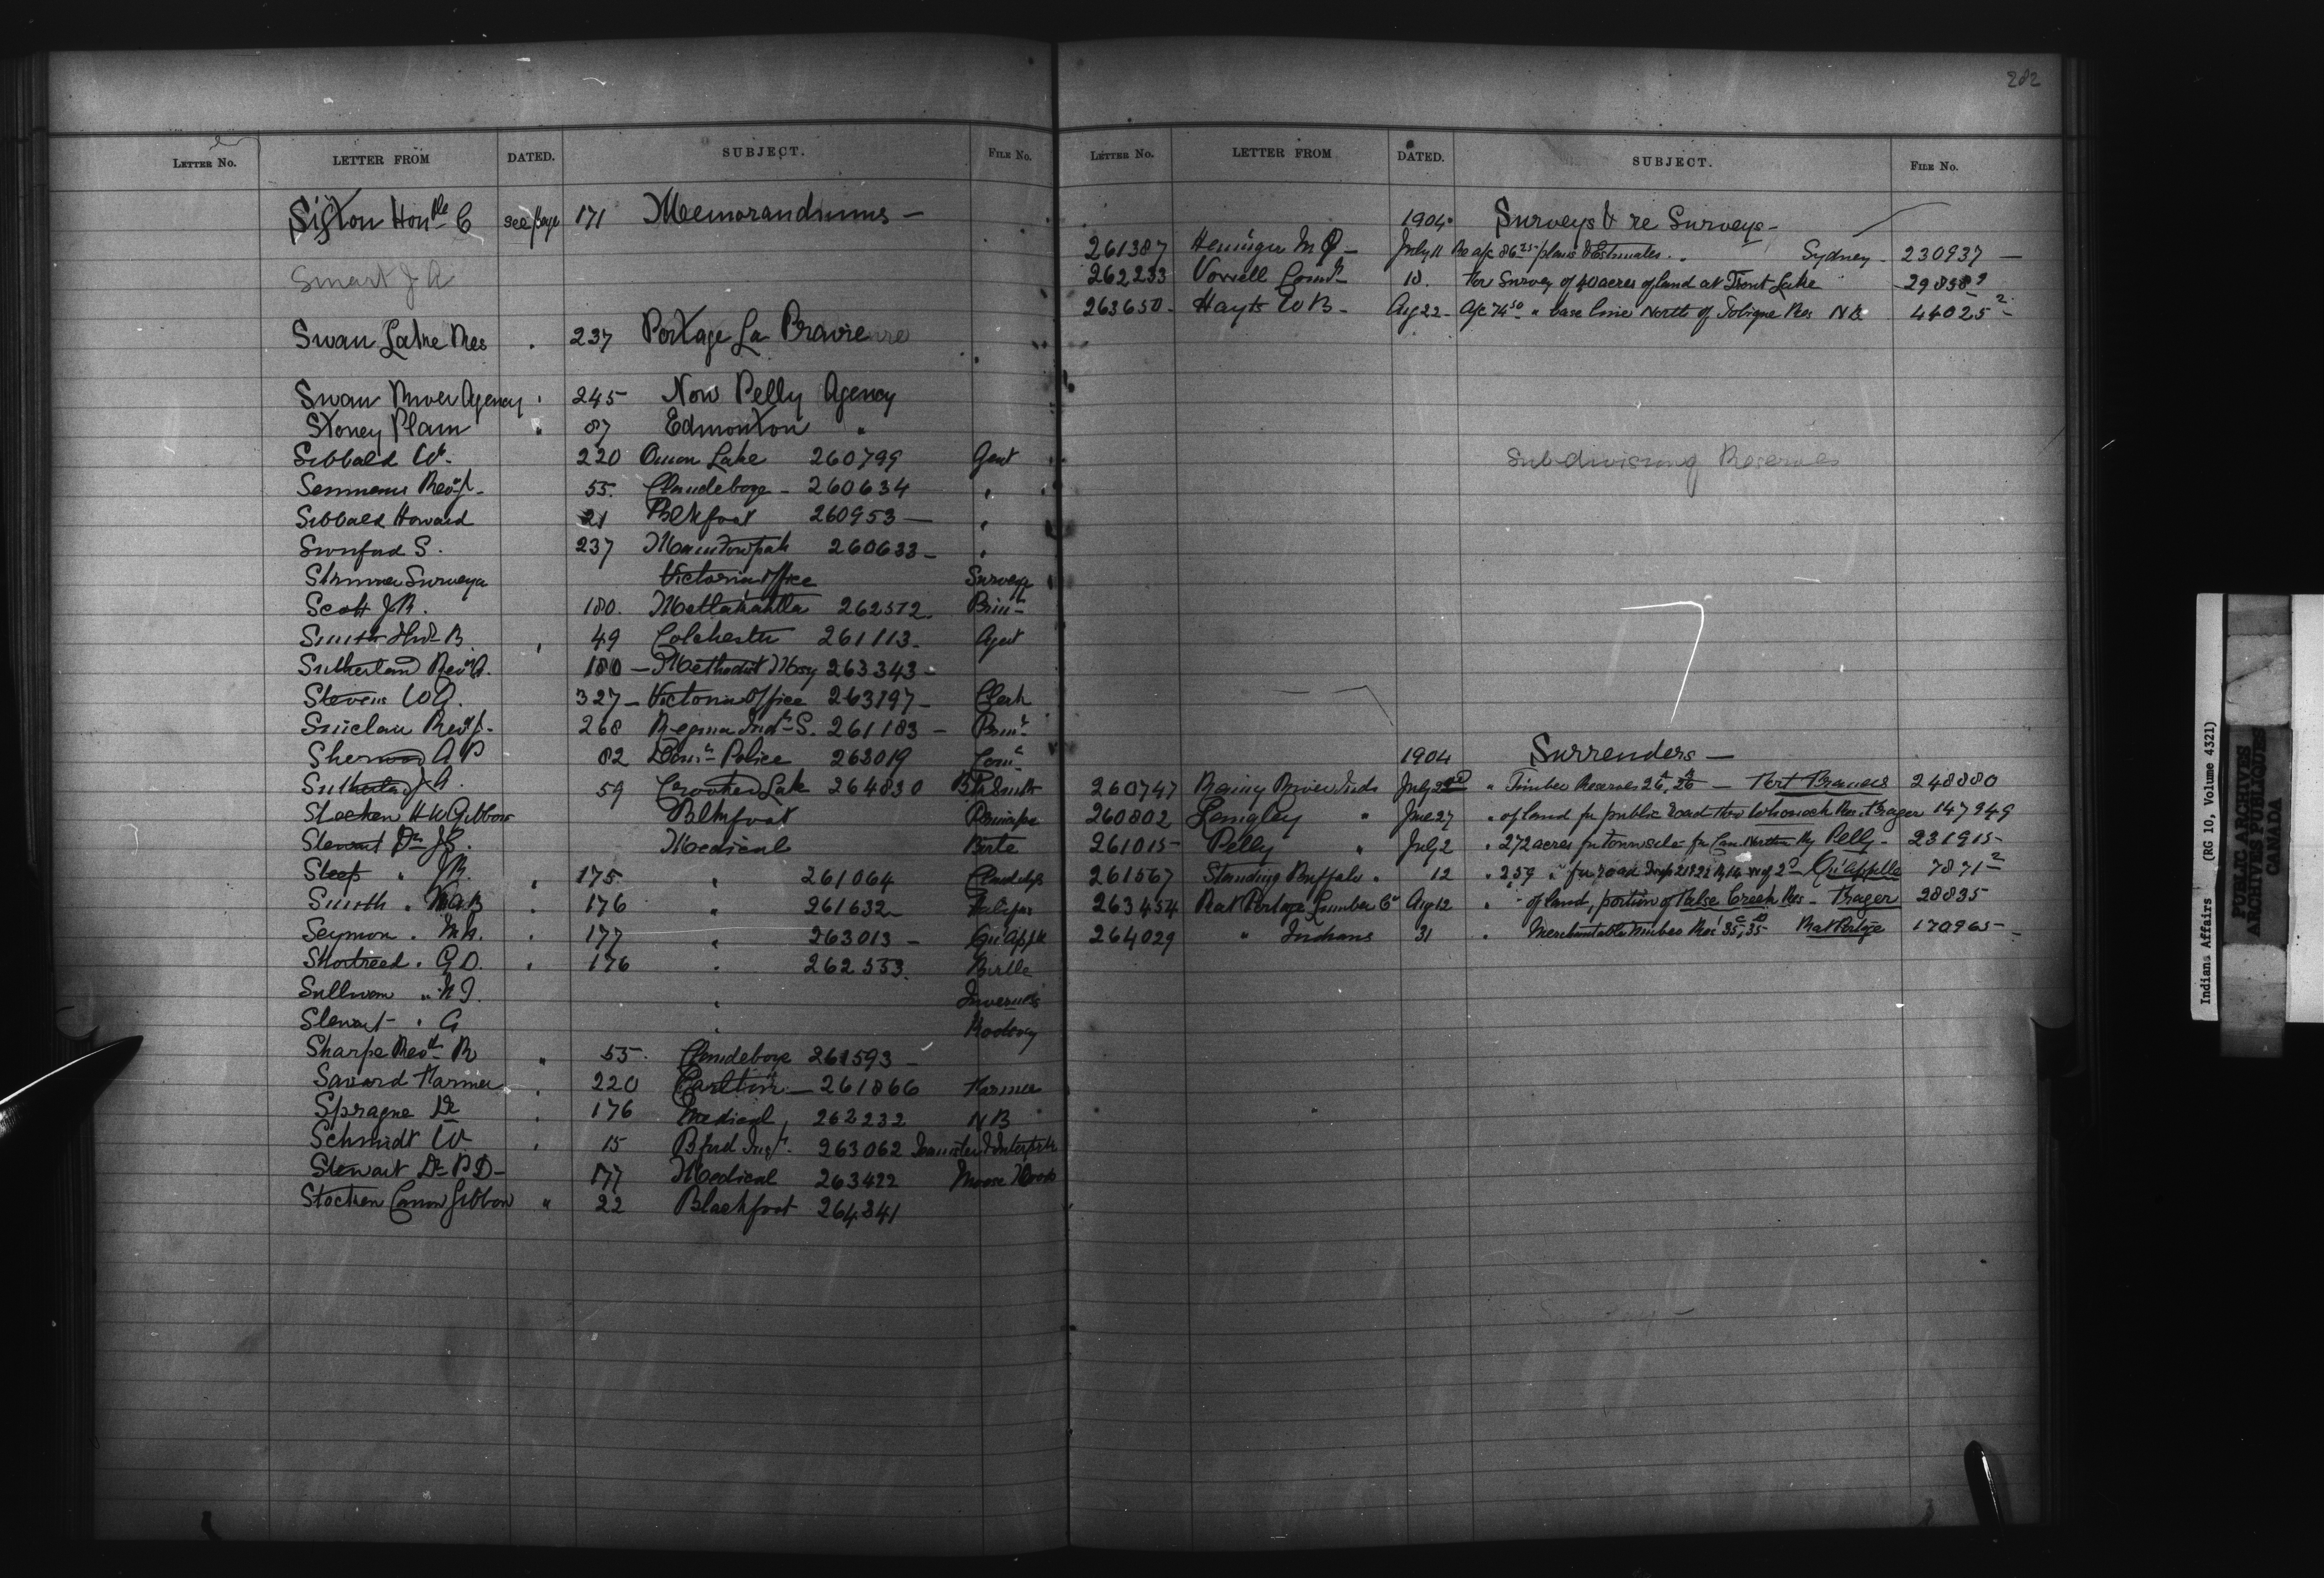 282
LETTER NO. LETTER FROM DATED. SUBJECT. FILE NO.
Sifton Honble C see page 171 Memorandums —
Smart J A
Swan Lake Res " 237 Portage La Prairie
Swan River Agency " 245 Now Pelly Agency
Stoney Plain " 87 Edmonton "
Sibbald W. 220 Onion Lake 260799 Agent
Semmens Revd J. 55. Clandeboye - 260634 "
Sibbald Howard 21 Blkfoot 260953 — "
Swinford S. 237 Manitowpah 260633 — "
Skinner Surveyor Victoria Office Surveyr
Scott J.R. 180. Metlakahtla 262572. Prin
Smith D.B. " 49 Colchester 261113. Agent
Sutherland Revd A. 180 — Methodist Missy 263343 —
Stevens W A. 327 — Victoria Office 263197 — Clerk
Sinclair Revd J. 268 Regina Indl S. 261183 — Prinl
Sherwood A P 82 Domn Police 263019 Comr
Sutherland J A. 59 Crooked Lake 264830 Blksmith
Stocken H W Gibbon Blkfoot
Stewart Dr J S. Medical Birtle
Steep " J R. " 175. " 261064 Clandeboye
Smith " W A B " 176 " 261632 — Halifax
Seymour " M M. " 177 " 263013 — Qu'Appelle
Shortreed " G D. " 176 " 262553. Birtle
Sullivan " N J. " Inverness
Stewart " A " Boderoy
Sharpe Revd R " 55. Clandeboye 261593 —
Savard Farmer " 220 Carlton — 261866 Farmer
Sprague Dr " 176 Medical, 262232 N B
Schmidt W. " 15 Bford Inst. 263062 Teamster & Interpreter
Stewart Dr P D — 177 Medical 263422 Moose Woods
Stocken Canon Gibbon " 22 Blackfoot 264341
LETTER NO. LETTER FROM DATED. SUBJECT. FILE NO.
1904. Surveys & re Surveys —
261387 Heninger M Q — July 11 Re a/c 86.25 plans & Estimates. Sydney — 230937 —
262233 Vowell Comr 18. For Survey of 40 acres of land at Trout Lake 29858
263650 — Hayts W B — Aug 22 — A/c 74.50 " base line North of Tobique Res N B. 44025 2
Subdivising Reserves
1904 Surrenders —
260747 Rainy River Inds July " Timber Reserves 26A, 26 — Fort Frances 248880
260802 Langley " June 27 " of land for public road thro Whonock Res. Fraser 147949
261015 — Pelly " July 2 " 272 acres for townsite for Can. Northern Ry Pelly — 231915 —
261567 Standing Buffalo " 12 " 259 " for road Qu'Appelle 7871 2
263454 Rat Portage Lumber Co Aug 12 " " of land, portion of False Creek Res — Fraser 28835
264029 " Indians 31 " Merchantable Timber Res. 35C, 35D Rat Portage 170965 —
Indians Affairs (RG 10, Volume 4321)
PUBLIC ARCHIVES
ARCHIVES PUBLIQUES
CANADA